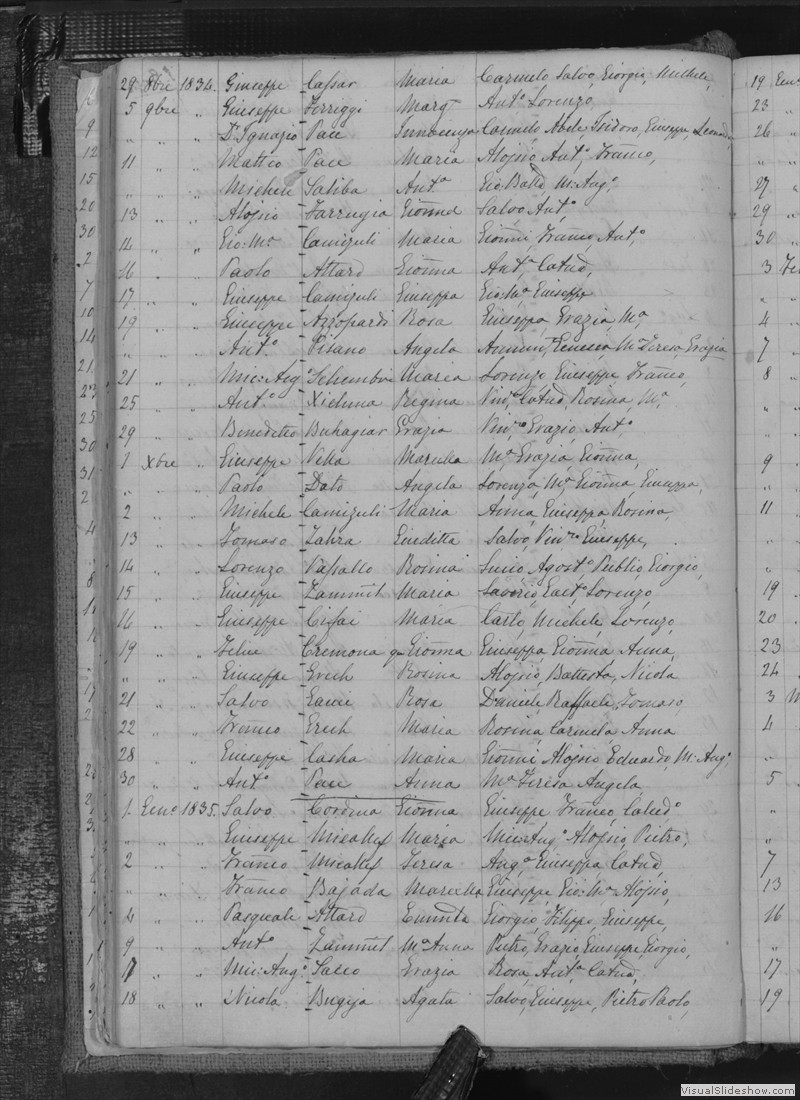 29 8bre 1834. Giuseppe Cassar Maria Carmelo Salvo, Giorgio, Michele,
5 9bre „ Giuseppe Ferriggi Marga Anto Lorenzo,
„ „ „ D. Ignazio Pace Innocenza Carmelo, Abele, Isidoro, Giuseppe, Leonardo,
11 „ „ Matteo Pace Maria Aloisio Anto, Franco,
„ „ Michele Saliba Anta Gio Batta M: Augo,
13 „ „ Aloisio Farrugia Gionna Salvo Anto,
14 „ „ Gio: Ma Camizuli Maria Gionni Franco Anto,
16 „ Paolo Attard Gionna Anta, Catna,
17 „ Giuseppe Camizuli Giuseppa Gio: Ma Giuseppe
19 „ Giuseppe Azzopardi Rosa Giuseppa Grazia, Ma,
„ „ Anto. Pisano Angela Teresa, Grazia
21 „ Mic: Ango Schembri Maria Lorenzo Giuseppe Franco,
25 „ „ Anto. Xicluna Regina Catna Rosina, Ma,
29 „ „ Benedetto Buhagiar Grazia Grazio Anto,
1 Xbre „ Giuseppe Vella Ma Grazia, Gionna,
„ „ „ Paolo Dato Angela Lorenza, Ma Gionna, Giuseppa,
2 „ „ Michele Camizuli Maria Anna, Giuseppa Rosina,
13 „ „ Tomaso Zahra Salvo, Giuseppe,
14 „ „ Lorenzo Vassallo Rosina Agosto Publio, Giorgio,
15 „ „ Giuseppe Zammit Maria Saverio, Gaeto Lorenzo,
16 „ „ Giuseppe Cifai Maria Carlo, Michele, Lorenzo,
19 „ „ Felice Cremona Gionna Giuseppa, Gionna Anna,
„ „ „ Giuseppe Grech Rosina Aloisio, Battista, Nicola
21 „ „ Salvo Rosa Daniele, Raffaele, Tomaso
22 „ „ Franco Grech Maria Rosina, Carmela Anna
28 „ „ Giuseppe Casha Maria Gionni Aloisio Eduardo, M: Ango,
30 „ „ Anto. Pace Anna Ma Teresa Angela
1. Geno. 1835. Salvo Cordina Gionna Giuseppe Franco, Caludo
„ „ „ Giuseppe Micallef Maria Mic: Ango, Aloisio, Pietro,
2 „ „ Franco Micallef Teresa Anga, Giuseppa, Catna
„ „ „ Franco Bajada Giuseppe Gio: Ma, Aloisio,
4 „ „ Pasquale Attard Giorgio Filippo Giuseppe,
9 „ „ Anto Zammit Ma Anna Pietro, Grazio, Giuseppe, Giorgio,
17 „ „ Mic: Ango. Grazia Rosa, Anta, Catna,
18 „ „ Nicola Bugeja Agata Salvo, Giuseppe, Pietro Paolo,
19 Geno
23 „
26 „
27 „
29 „
30 „
3
4
7
8
9
11
19
20
23
24
3
4
5
7
13
16
17
19
VisualSlideshow.com